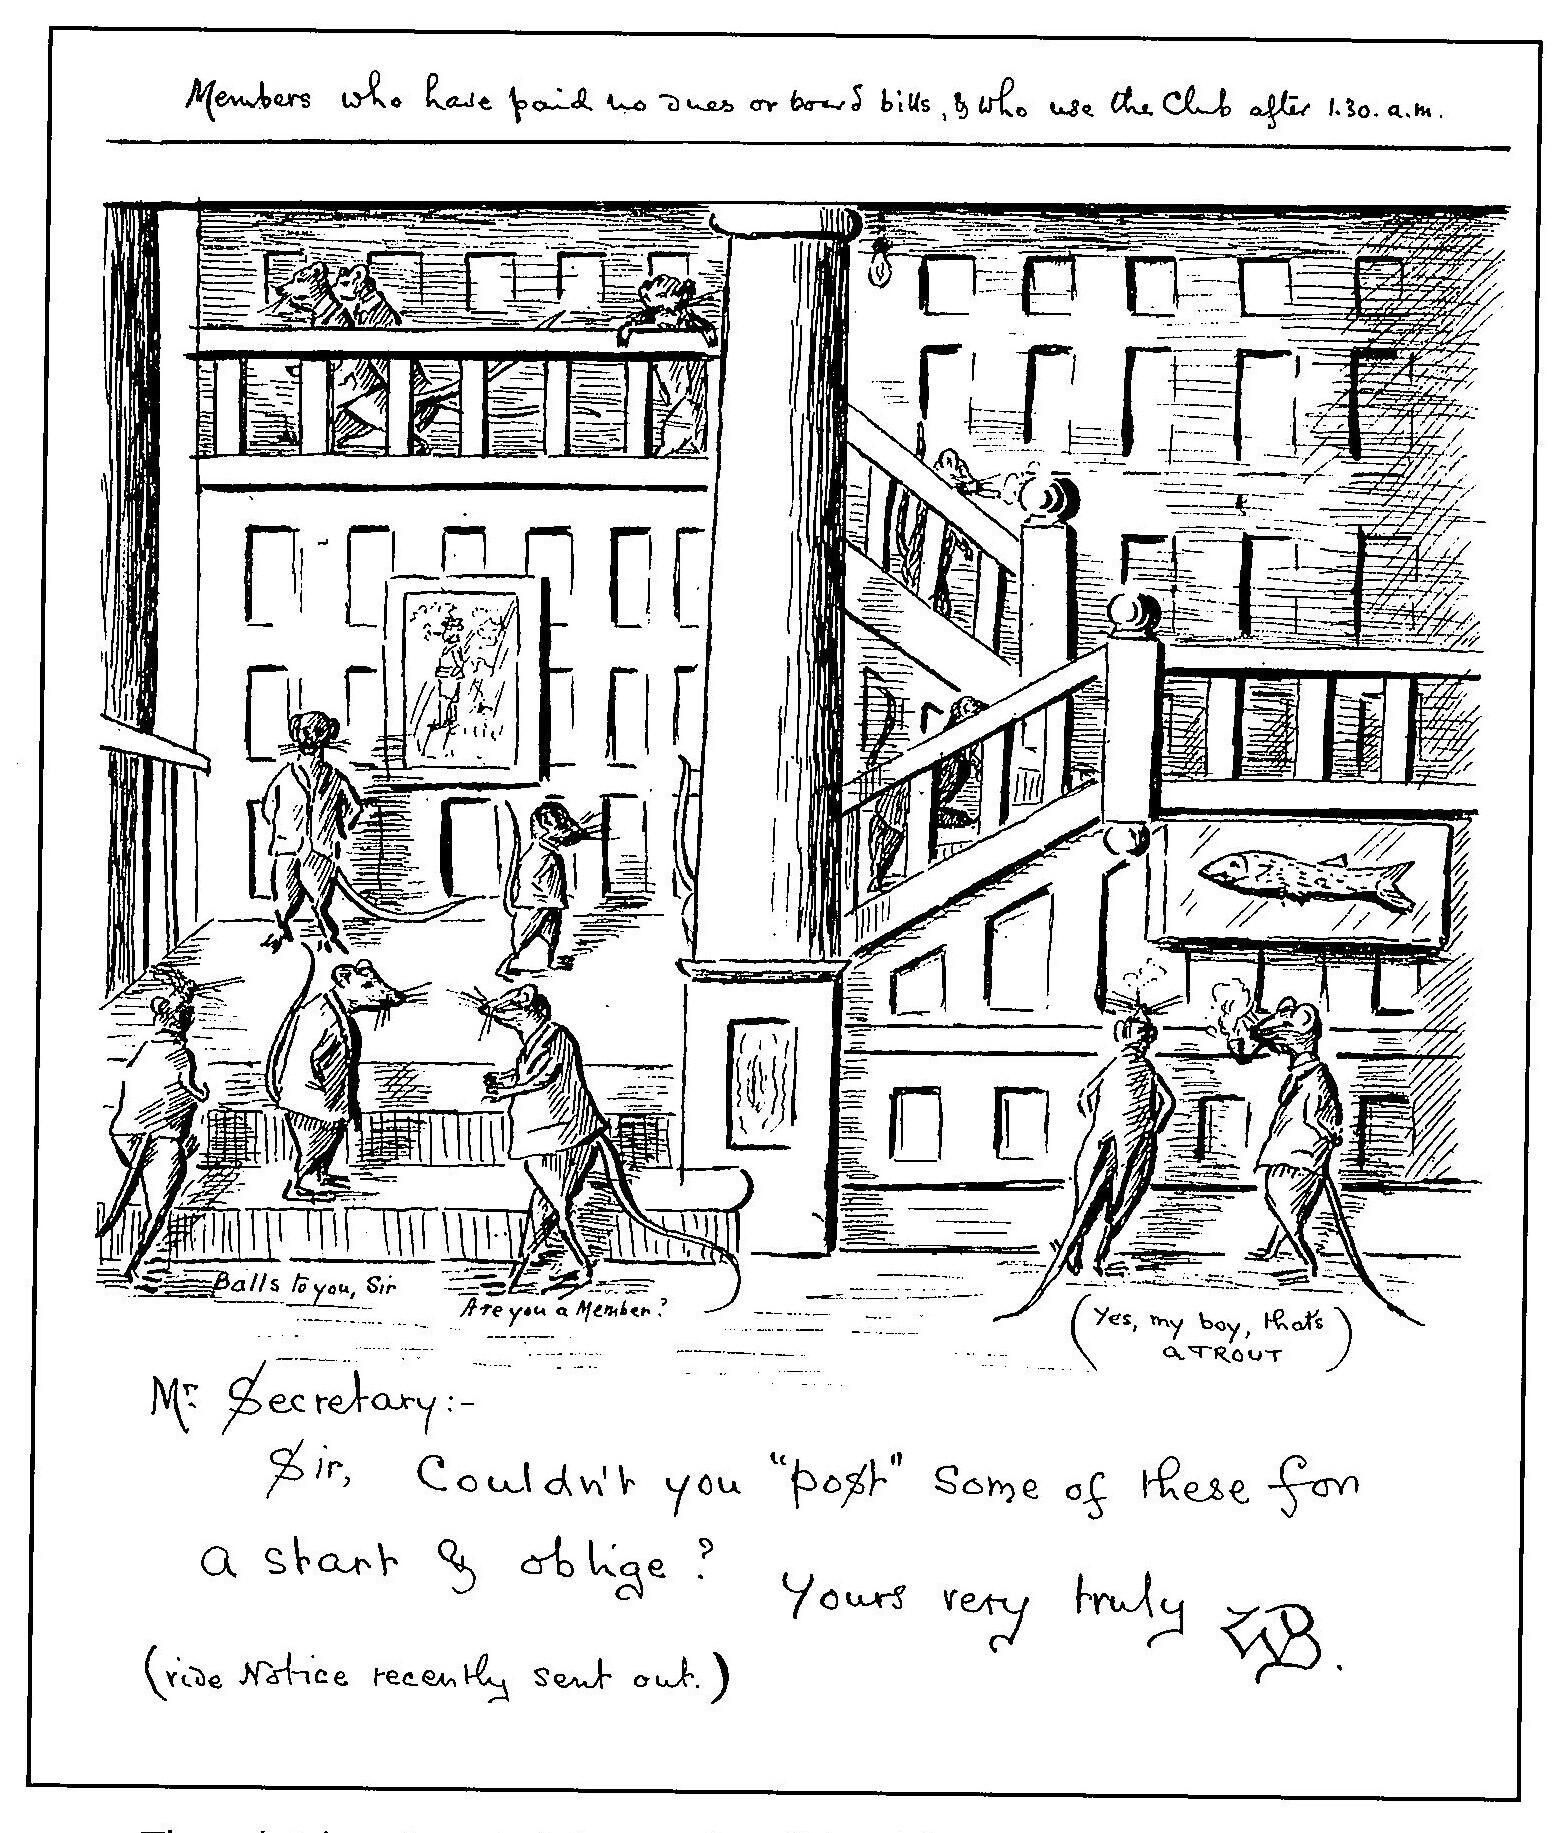 Members who have paid no dues or board bills, & who use the Club after 1.30. a.m.
Balls to you, Sir
Are you a Member?
(Yes, my boy, that's
a TROUT)
Mr. Secretary:-
Sir, Couldn't you "post" some of these for
a start & oblige?
Yours very truly
(vide Notice recently sent out.)